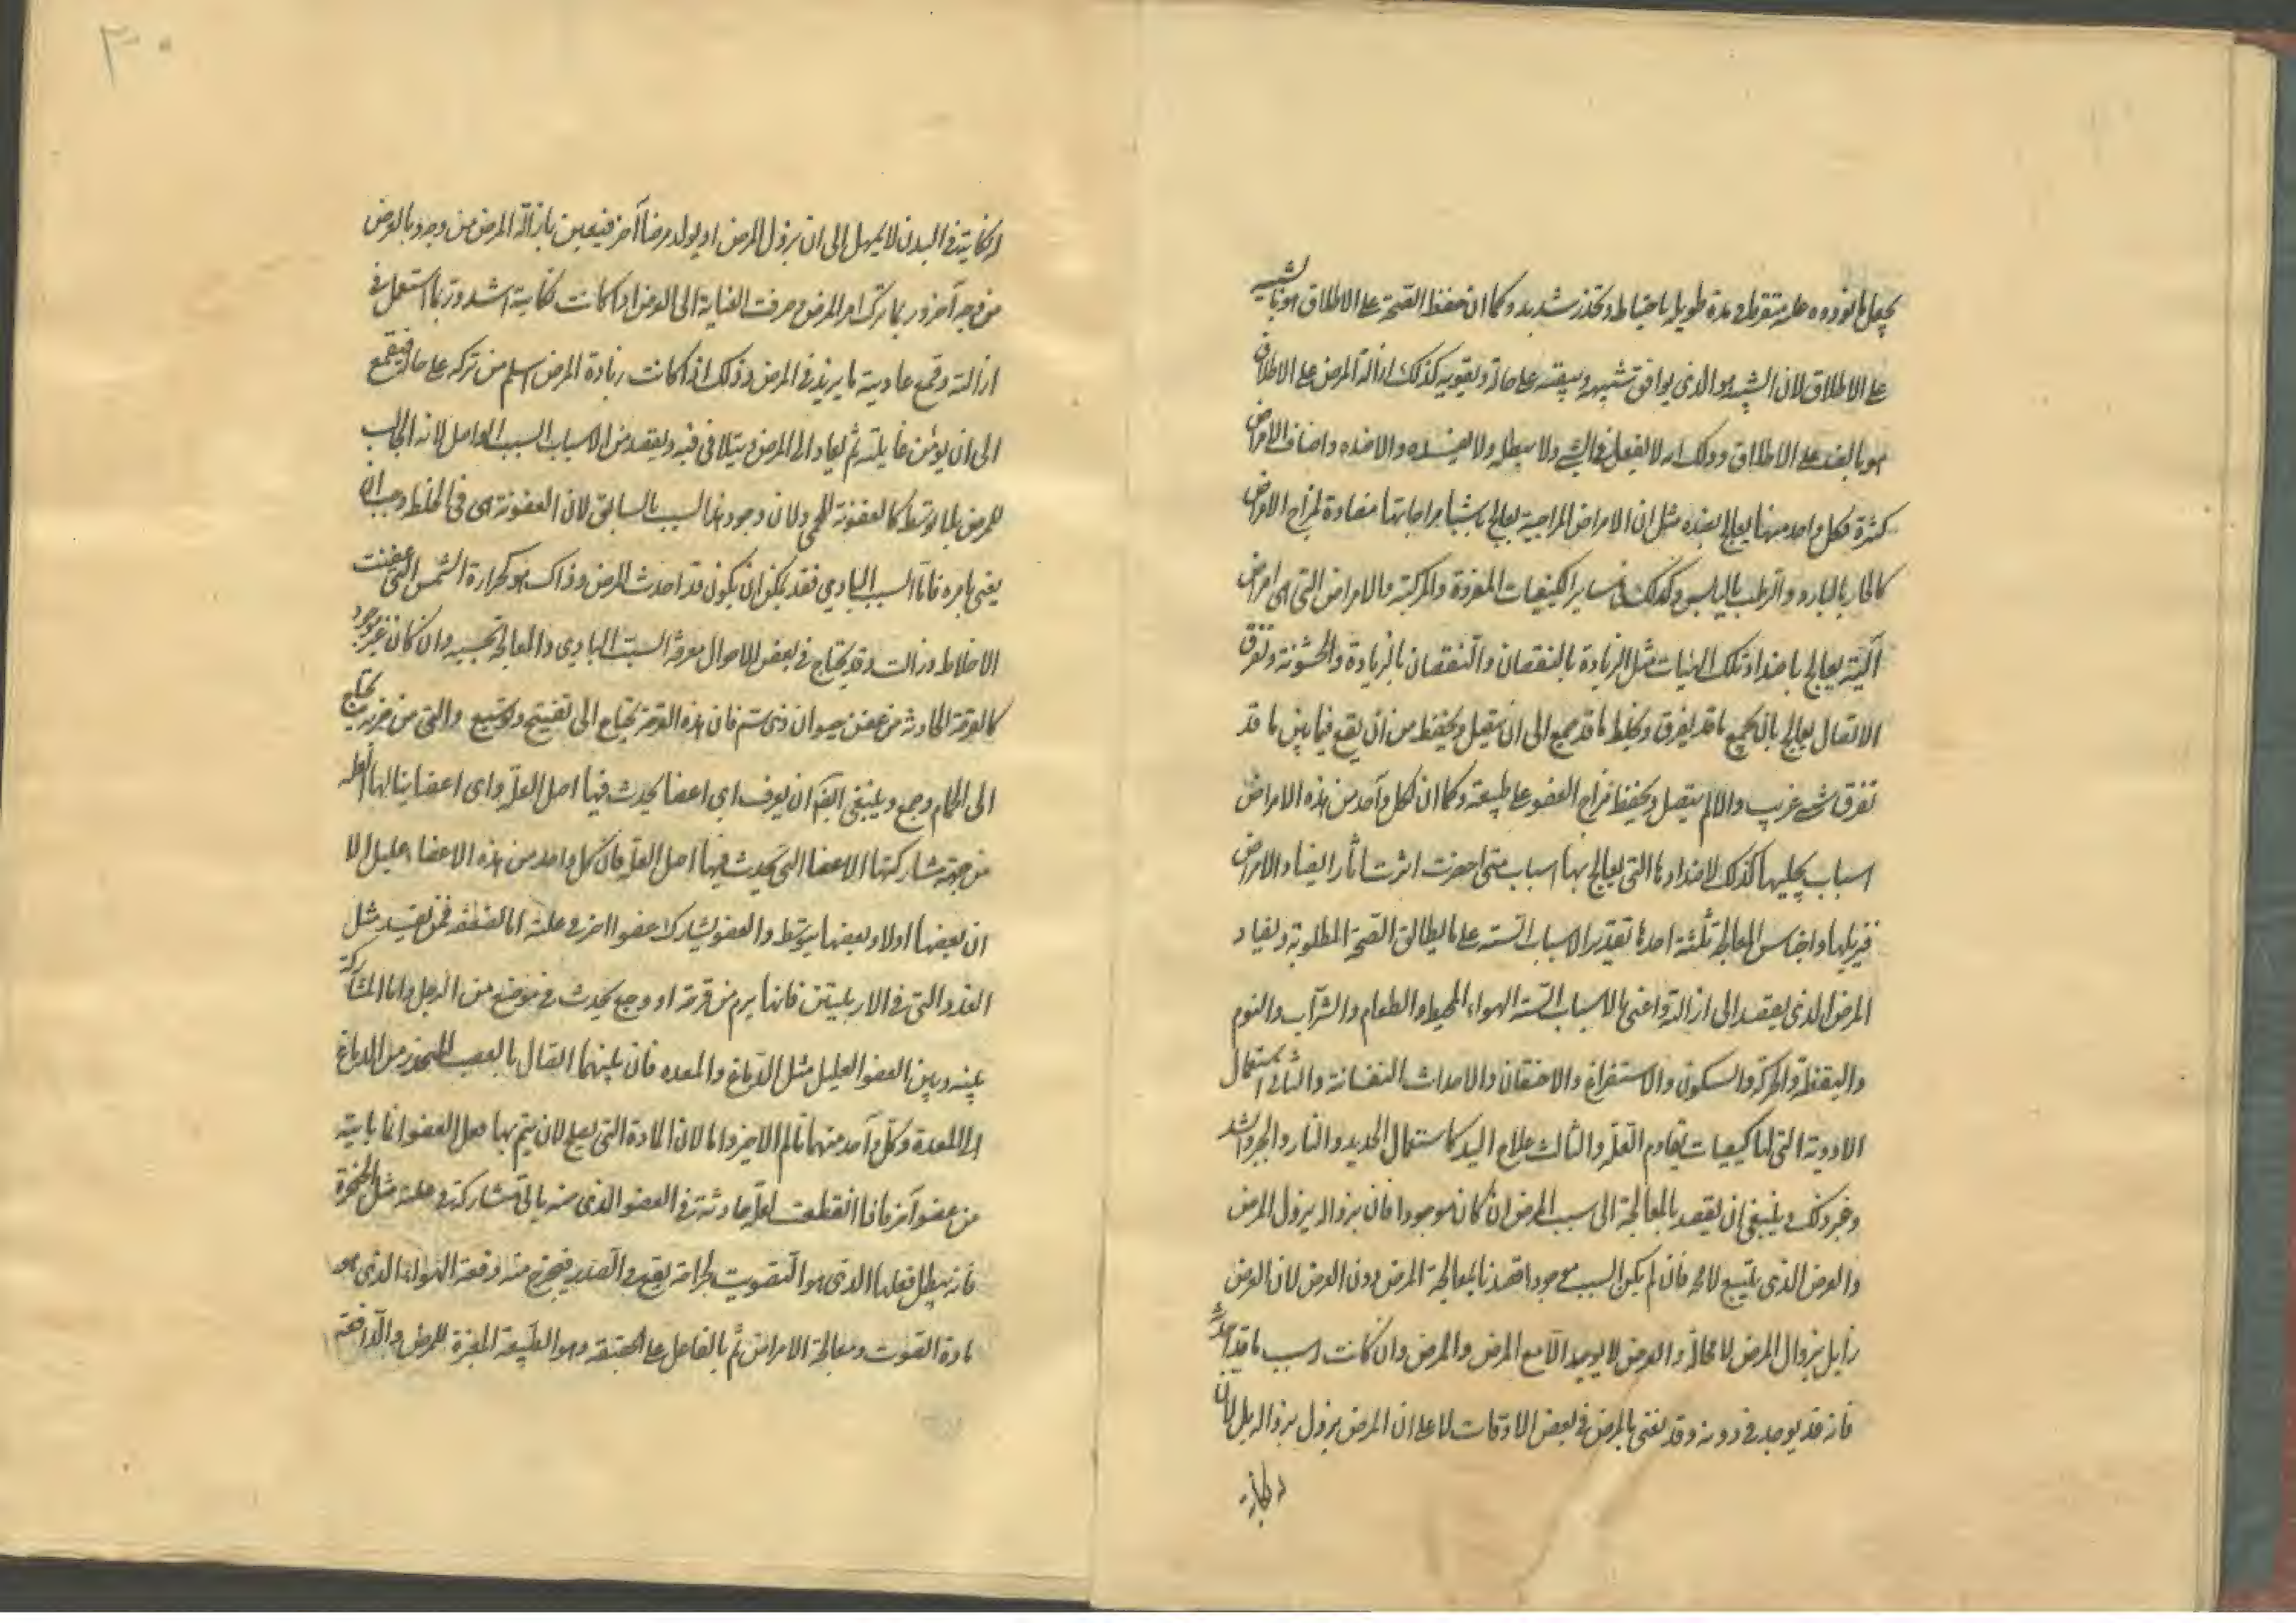 على الاطلاق لان الشبيه هو الذي يوافق شبيهه ويبقيه على حاله ويقويه كذلك ازالة المرض على الاطلاق
هو بالضد على الاطلاق وذلك انه لا يفعل في الشيء ولا يبطله ولا يفسده الا ضده واصناف الامراض
كثيرة فكل واحد منها يعالج بضده مثل ان الامراض المزاجية يعالج باشيا مزاجاتها مضادة لمزاج الامراض
كالحار بالبارد والرطب باليابس وكذلك في ساير الكيفيات المفردة والمركبة والامراض التي هي امراض
آلية يعالج باضداد تلك الهيات مثل الزيادة بالنقصان والنقصان بالزيادة والخشونة وتفرق
الاتصال يعالج بان يجمع ما قد يفرق ويحفظ ما قد جمع الى ان يتصل ويحفظ من ان يقع فيما بين ما قد
تفرق شيء غريب والالم يتصل ويحفظ مزاج العضو على طبيعته وكما ان لكل واحد من هذه الامراض
اسباب يجلبها كذلك لاضدادها التي يعالج بها اسباب متى احضرت اثرت آثارا يضاد الامراض
فيزيلها واجناس المعالجة ثلثة احدها تقدير الاسباب الستة على ما يطابق الصحة المطلوبة ويضاد
المرض الذي يقصد الى ازالته واعني بالاسباب الستة الهواء المحيط والطعام والشراب والنوم
واليقظة والحركة والسكون والاستفراغ والاحتقان والاحداث النفسانية والثاني استعمال
الادوية التي لها كيفيات يقاوم العلة والثالث علاج اليد كاستعمال الحديد والنار والجبر والشد
وغير ذلك وينبغي ان يقصد بالمعالجة الى سبب المرض ان كان موجودا فان بزواله يزول المرض
والعرض الذي يتبع لا محه فان لم يكن السبب موجودا قصدنا بمعالجة المرض دون العرض لان العرض
زايل بزوال المرض لا محالة والعرض لا يوجد الا مع المرض والمرض وان كانت اسبب ما قد احدثه
فانه قد يوجد في دونه وقد نعتني بالمرض في بعض الاوقات لا على ان المرض يزول بزواله بل لان
لنكايته في البدن لا يمهل الى ان يزول المرض او يولد مرضا آخر فنيعين بازالة المرض من وجه وبالعرض
من وجه آخر وربما ترك امر المرض وصرفت العناية الى العرض اذا كانت نكايته اشد وربما استعمل في
ازالته وقمع عاديته ما يزيد في المرض وذلك اذا كانت زيادة المرض اسلم من تركه على حاله فيقمع
الى ان يؤمن غايلته ثم يعاد الى المرض ويتلافى فيه ويقصد من الاسباب السبب الواصل لانه الجالب
للمرض بلا توسط كالعفونة للحمى ولان وجود هذا السبب بالسابق لان العفونة هي في الخلط وجب ان
يعنى بامره فاما السبب البادي فقد يمكن ان يكون قد احدث المرض وذاك هو كحرارة الشمس التي عفنت
الاخلاط وزالت وقد يحتاج في بعض الاحوال معرفة السبب البادي والمعالجة بحسبه وان كان غير موجود
كالقرحة الحادثة من عض حيوان ذي سم فان هذه القرحة يحتاج الى تفتيح وتوسيع والتي من ضربه يحتاج
الى الحام وجمع وينبغي ايضا ان يعرف اي اعضا يحدث فيها اصل العلة واى اعضا ينالها العلة
من جهة مشاركتها الاعضا التي يحدث فيها اصل العلة فان كل واحد من هذه الاعضاء عليل الا
ان بعضها اولا وبعضها بتوسط والعضو يشارك عضوا اخر في علته اما لضعفه
الغدد التي في الاربيتين فانها يرم من قرحة او وجع يحدث في موضع من الرجل واما المشاركة
بينه وبين العضو العليل مثل الدماغ والمعده فان بينهما اتصال بالعصب المنحدر من الدماغ
الى المعدة وكل واحد منهما تالم الآخر واما لان المادة التي يصلح لان يتم بها فعل العضو انما ياتيه
من عضو آخر فاذا انقطعت لعلة حادثة في العضو الذي منه ياتي شاركه في علته مثل الحنجرة
فانه يبطل فعلها الذي هو التصويت لجراحة يقع في الصدر فيخرج منه دفعة الهواء الذي هو
مادة الصوت ومعالجة الامراض تم بالفاعل على الحقيقة وهو الطبيعة المغيرة للمرض والدافعة